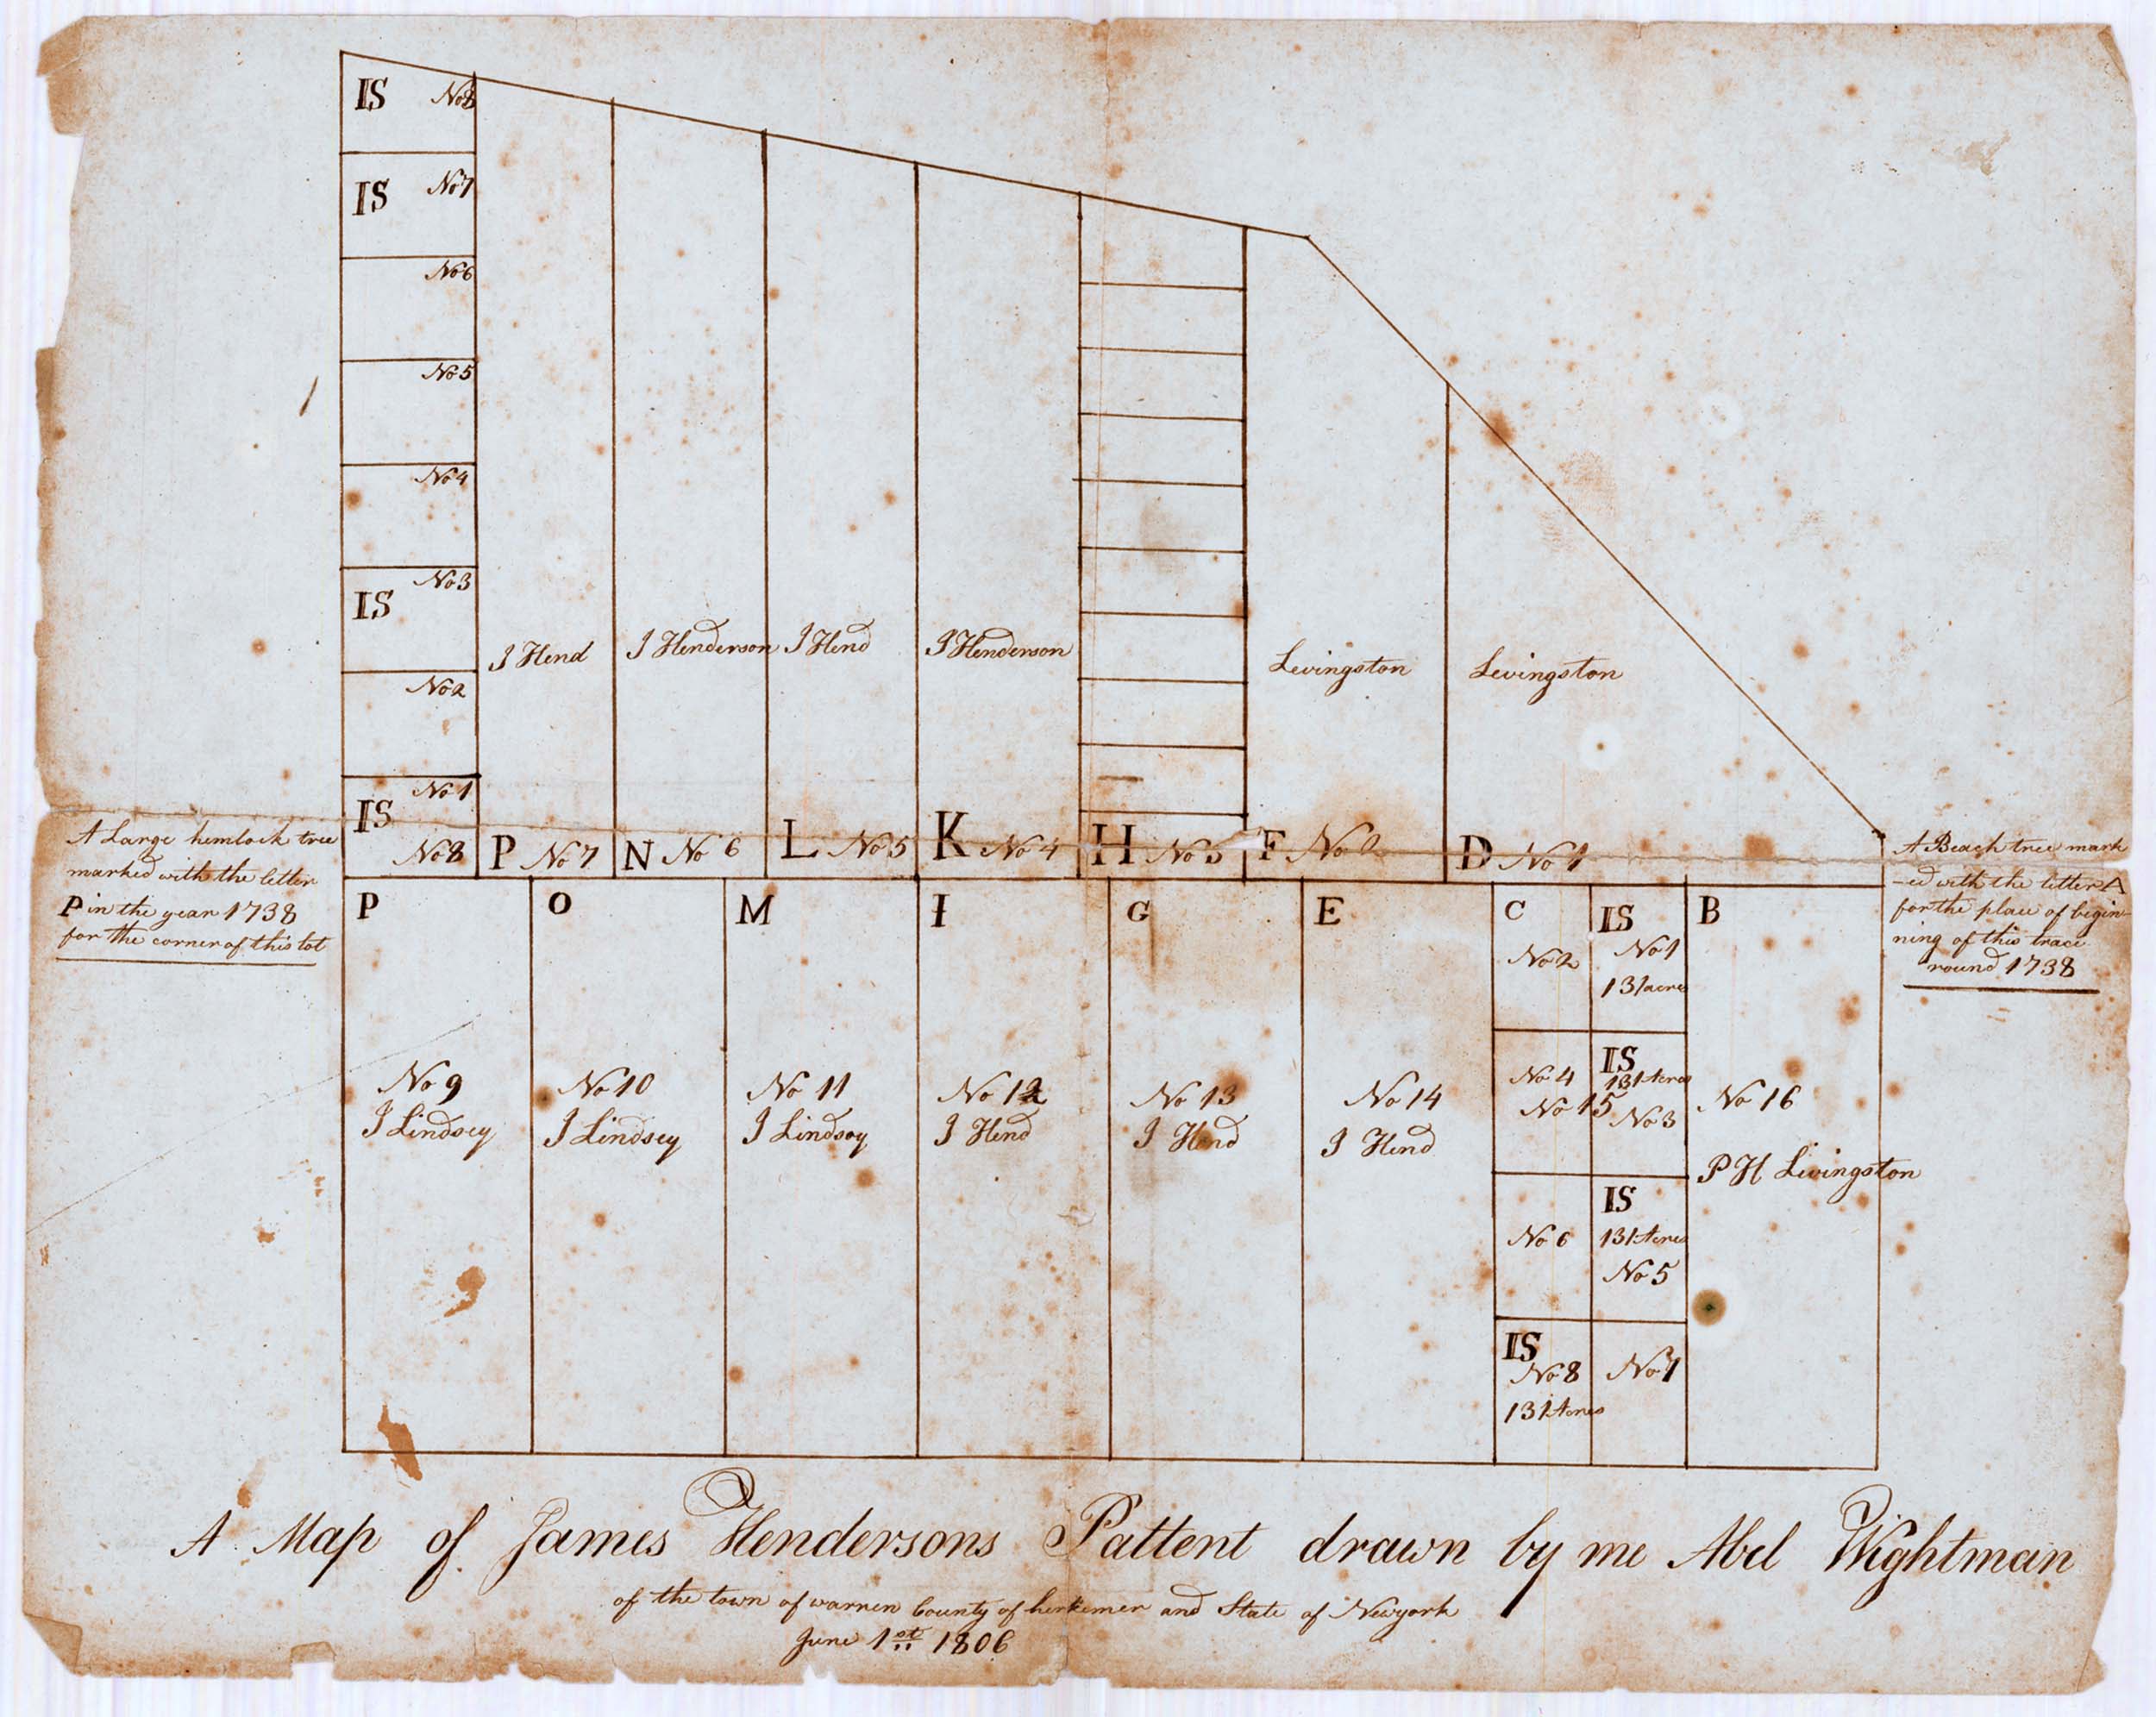 IS No 8
IS No 7
No 6
No 5
No 4
No 3
IS
No 2
No 1
IS
No 8
J Hend
J Henderson
J Hend
J Henderson
Levingston
Levingston
P No 7
N No 6
L No 5
K No 4
H No 3
F No
D No 1
A Large hemlock tree
marked with the letter
P in the year 1738
for the corner of this lot
A Beach tree mark
-ed with the letter A
for the place of begin-
ning of this trace
round 1738
P
No 9
J Lindsey
O
No 10
J Lindsey
M
No 11
J Lindsey
I
No 12
J Hend
G
No 13
J Hend
E
No 14
J Hend
C
No 2
IS
No 1
131 acres
No 4
IS
131 Acres
No 15
No 3
No 6
IS
131 Acres
No 5
IS
No 8
131 Acres
No 7
B
No 16
P H Livingston
A Map of James Hendersons Pattent drawn by me Abel Wightman
of the town of warren County of herkemer and State of Newyork
June 1st 1806